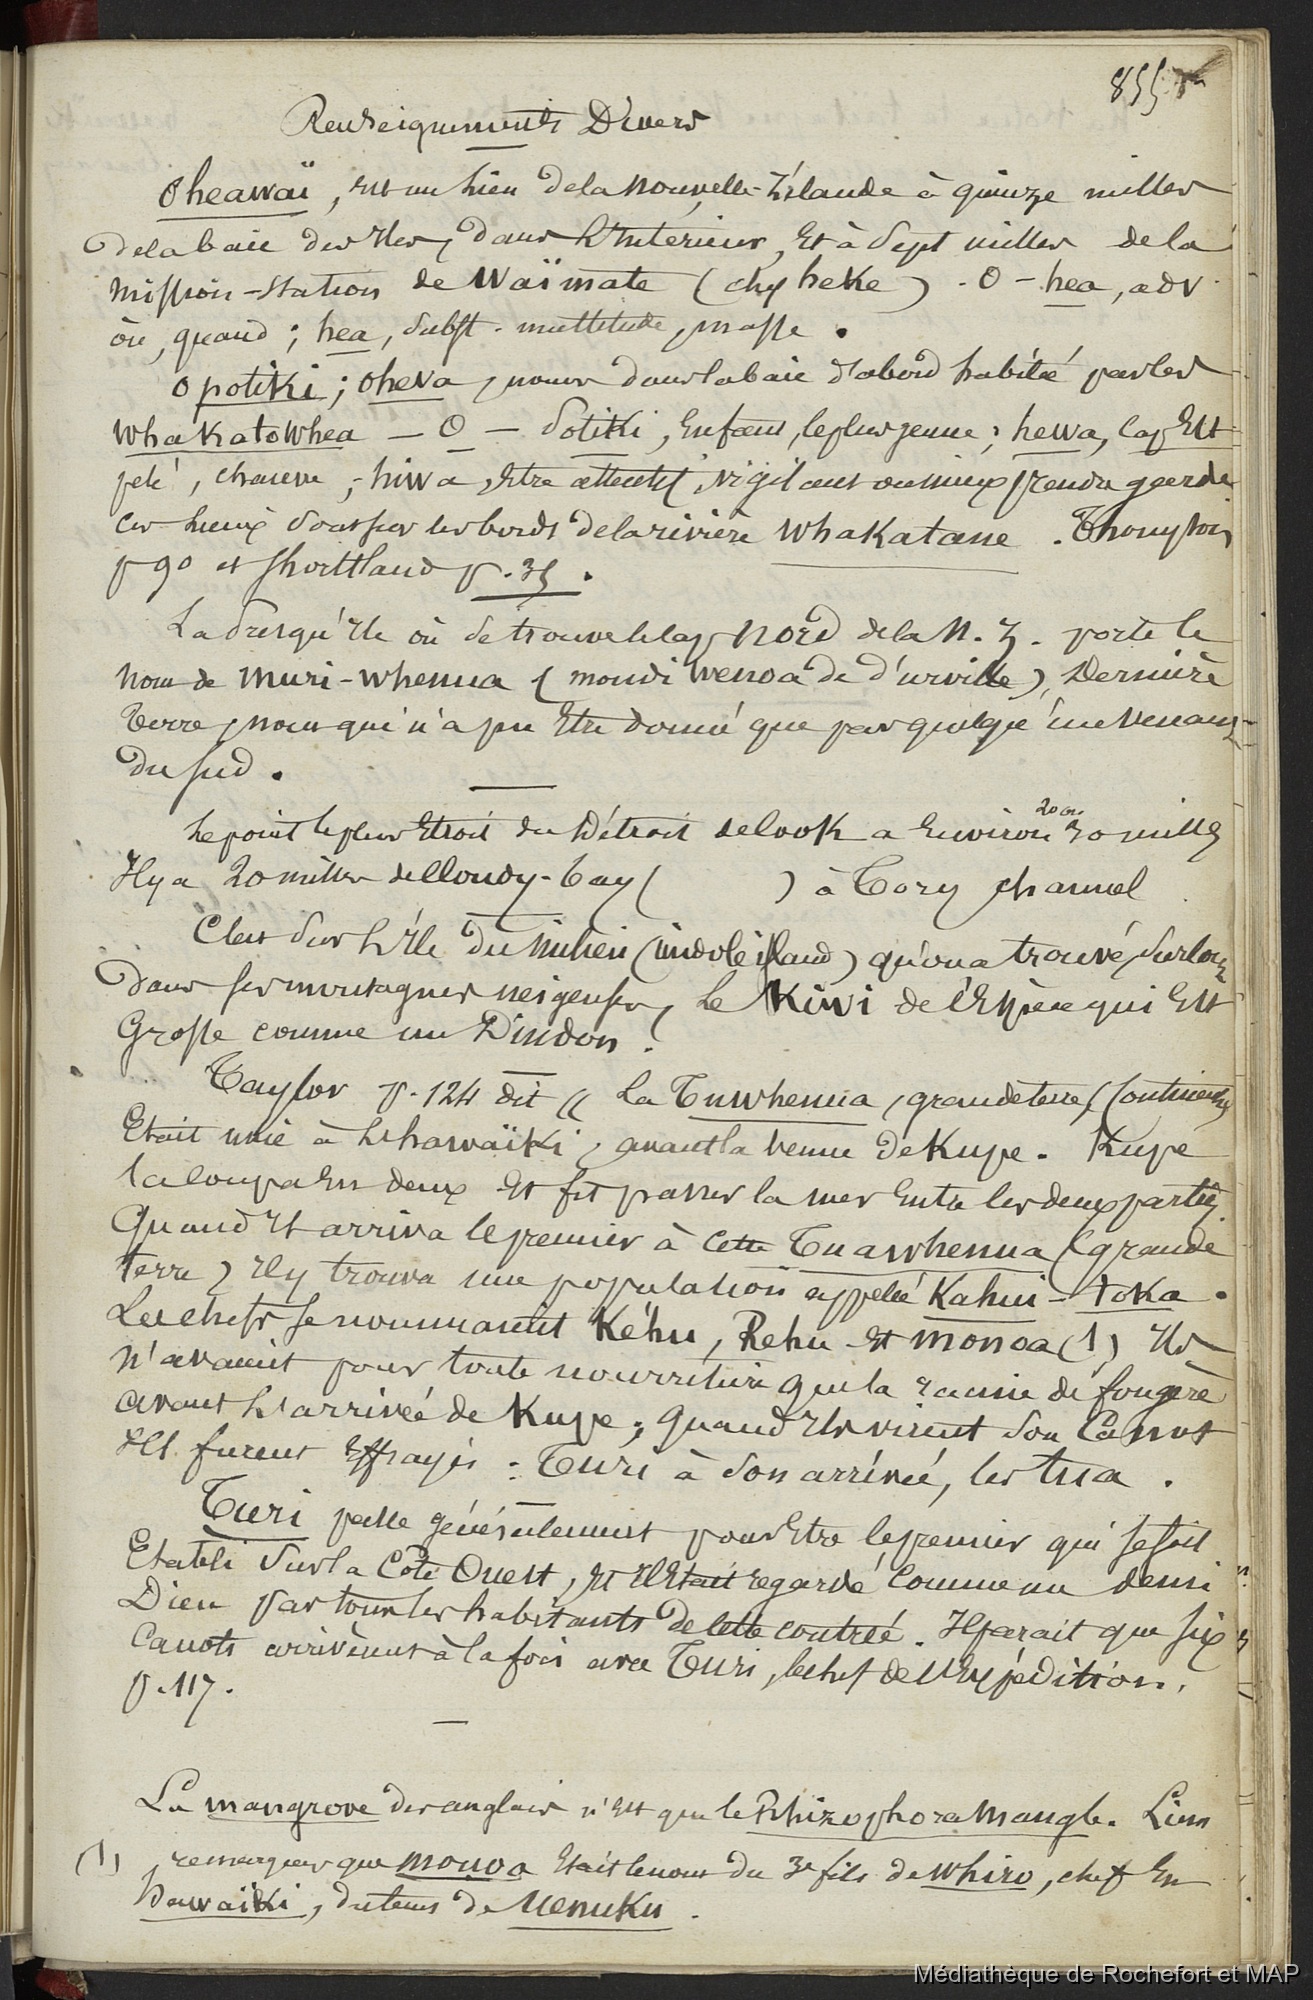 855
Renseignements Divers
Oheawaï, Est un lieu de la Nouvelle-Zélande à quinze milles
de la baie des Iles, dans l'Intérieur, Et à Sept milles de la
Mission-Station de Waïmate (chez heke). O - hea, adv
où, quand ; hea, Subst. multitude, masse.
Opotiki ; Oheva, noms dans la baie d'abord habitée par les
Whakatowhea — O — Potiki, Enfant, le plus jeune ; hewa, Est
pelé, chauve ; hiwa, Etre attentif, vigilant ou mieux prendre garde
Ces lieux Sont sur les bords de la rivière Whakatane. Thompson
p 90 et Shortland p. 35.
La Presqu'Ile où Se trouve le Cap Nord de la N. Z. porte le
Nom de Muri-Whenua (moudi wenoa de d'urville), Dernière
Terre, nom qui n'a pu Etre donné que par quelqu'un venant
Du Sud.
Le point le plus Etroit du Détroit de Cook a Environ 20 ou 30 milles
Il y a 20 milles de Cloudy-bay ( ) à Tory channel
C'est Sur l'Ile du Milieu (midole island) qu'on a trouvé, Surtout
Dans ses montagnes neigeuses, le Kiwi de l'Espèce qui Est
Grosse comme un Dindon.
Taylor p. 124 dit « La Tuwhenua, grande terre, (continent)
Etait unie à l'hawaïki, avant la venue de Kupe. Kupe
la coupa En deux Et fit passer la mer Entre les deux parties.
Quand Il arriva le premier à Cette Tuawhenua (grande
terre) Il y trouva une population appelée Kahui-toka.
Les chefs se nommaient Kéhu, Rehu Et Monoa (1) Ils
n'avaient pour toute nourriture que la racine de fougère
avant l'arrivée de Kupe ; quand Ils virent Son Canot
Ils furent Effrayés : Turi à Son arrivée, les tua.
Turi passe généralement pour Etre le premier qui se soit
Etabli Sur la Côte Ouest, Et Il Etait regardé Comme un demi
Dieu par tous les habitants de Cette contrée. Il parait que six
Canots arrivèrent à la fois avec Turi, le chef de l'Expédition.
p. 117.
La mangrove des anglais n'Est que le Rhizophora Mangle. Linn
(1) remarquer que Monoa Etait le nom du 3e fils de Whiro, chef En
hawaïki, du tems de Uenuku.
Médiathèque de Rochefort et MAP